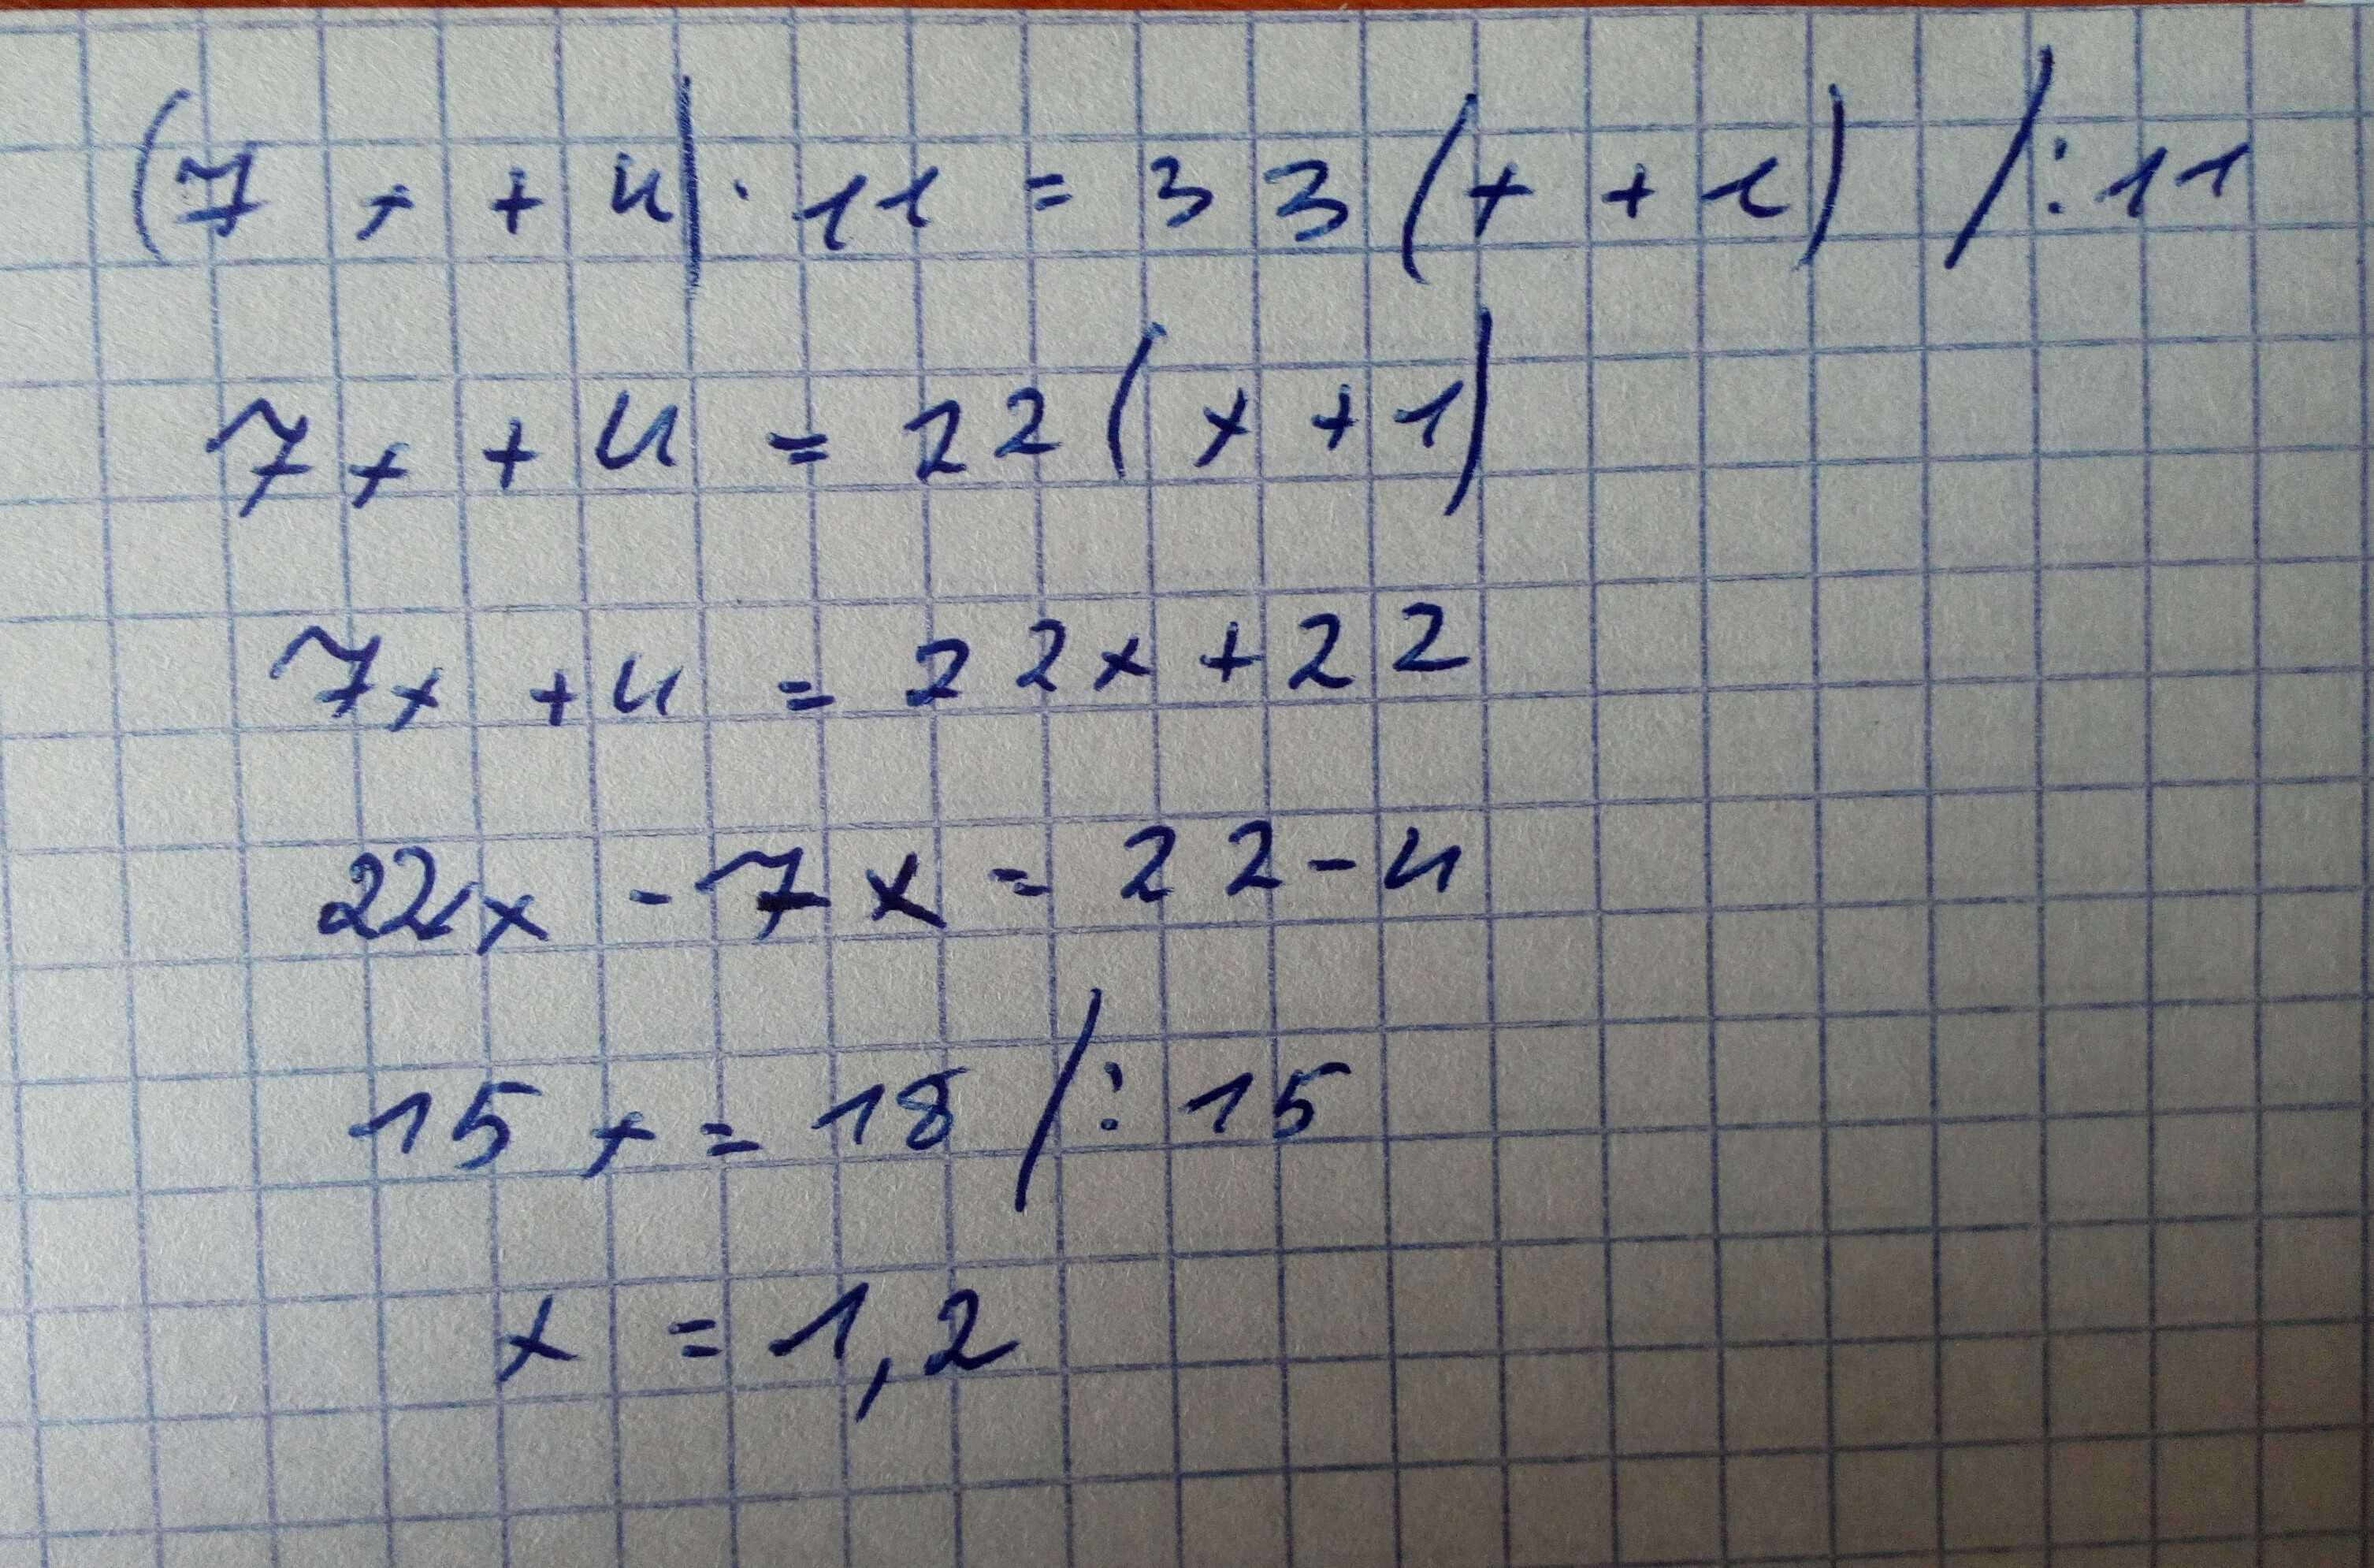 (7x + 4) · 11 = 33 (x + 1) /: 11
7x + 4 = 22 (x + 1)
7x + 4 = 22x + 22
22x - 7x = 22 - 4
15x = 18 /: 15
x = 1,2